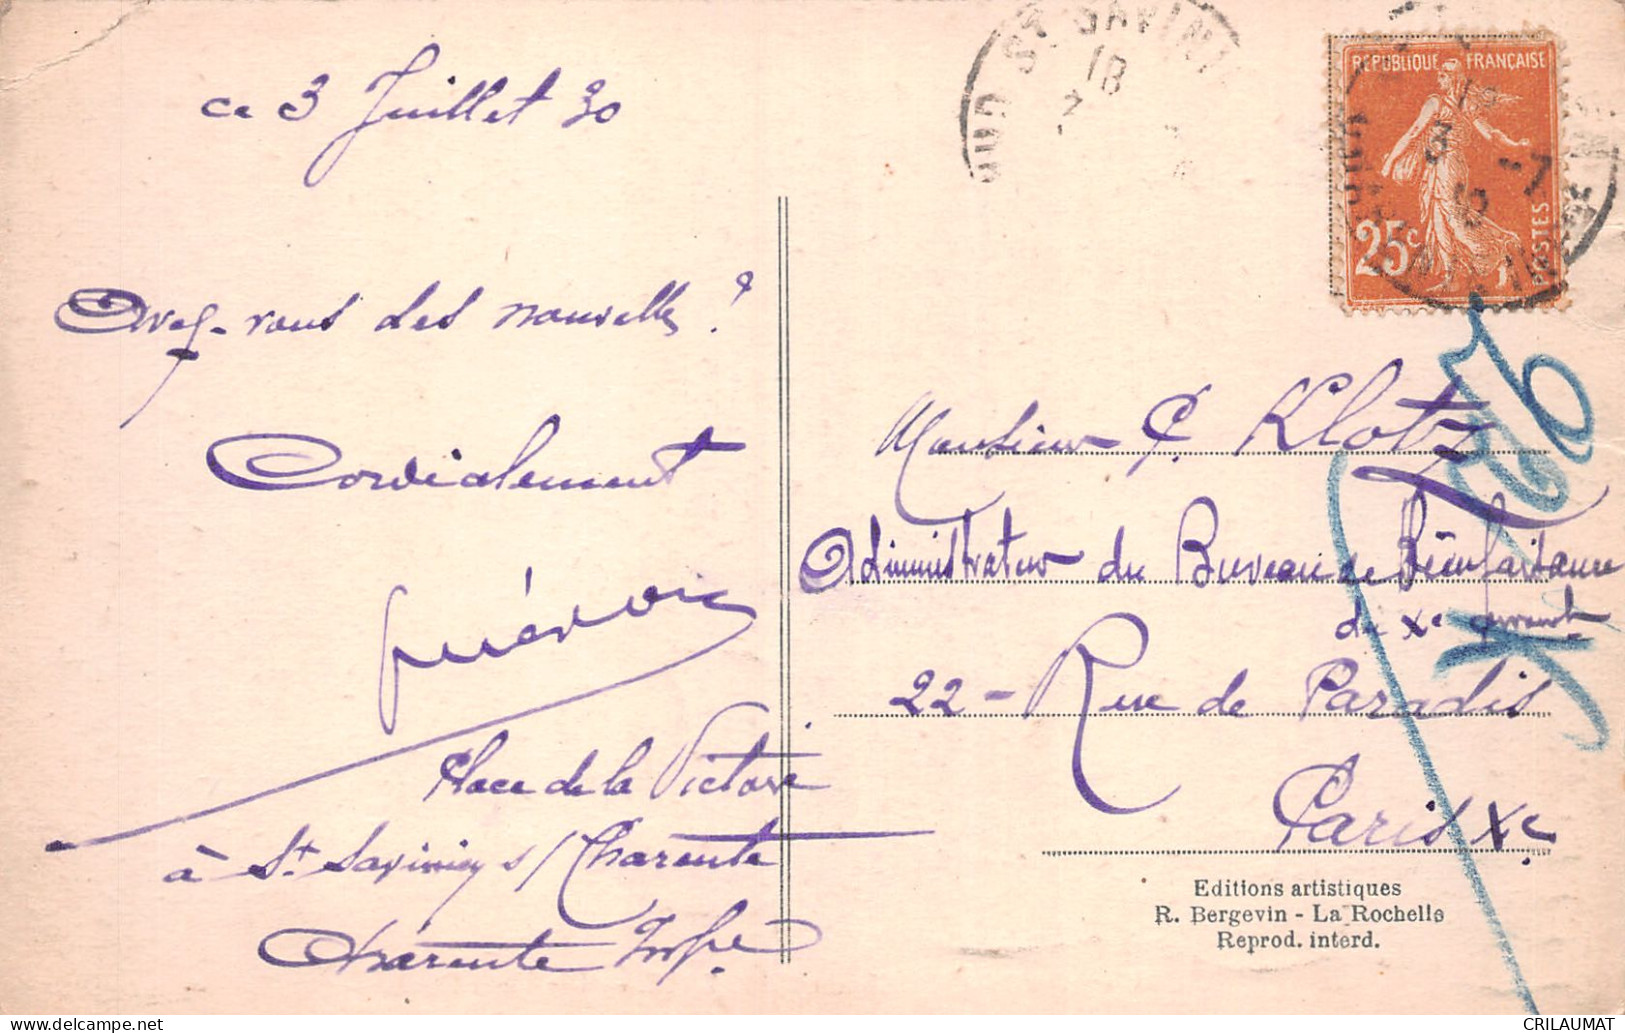 ce 3 Juillet 30
Avez-vous des nouvelles ?
Cordialement
Place de la Victoire
à St Savinien s/ Charente
Charente Infre
ST SAVINI
18
RÉPUBLIQUE FRANÇAISE
25c
POSTES
Monsieur G. Klotz
Administrateur du Bureau de Bienfaisance
du Xe
22 - Rue de Paradis
Paris Xe
Editions artistiques
R. Bergevin - La Rochelle
Reprod. interd.
CRILAUMAT